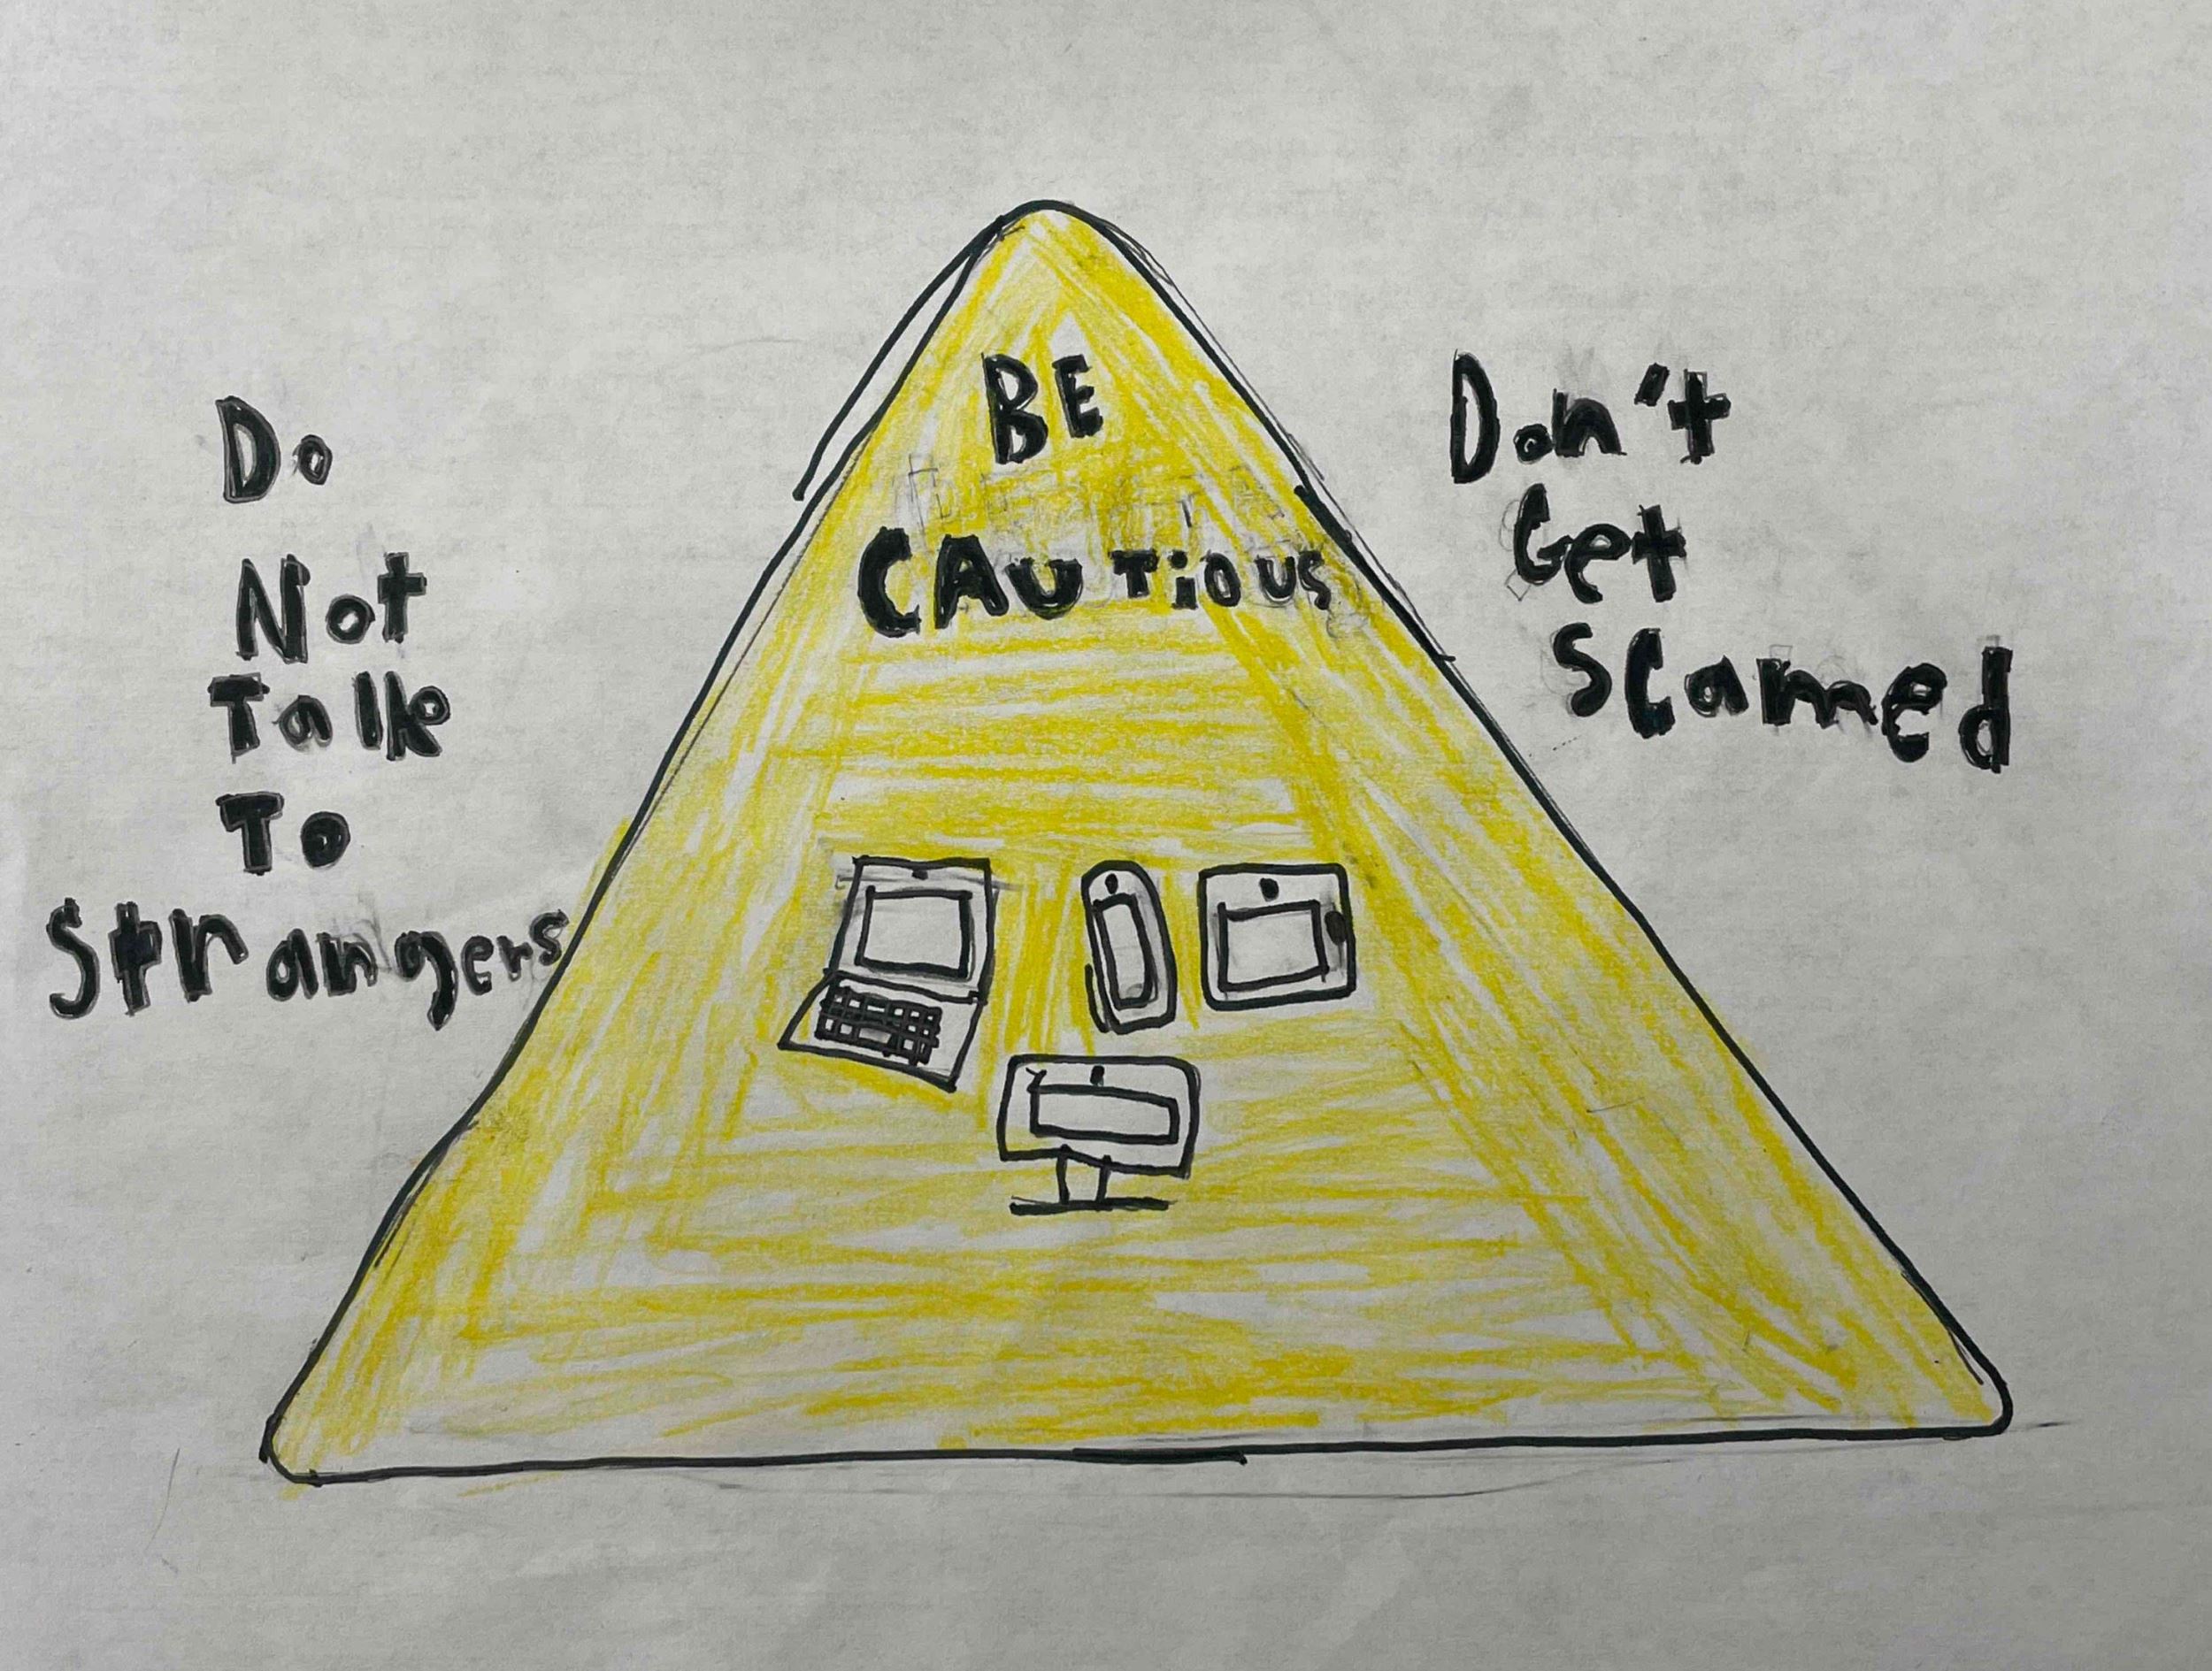 BE
CAUTiOUS
Do
Not
Talk
To
Strangers
Don't
Get
Scamed